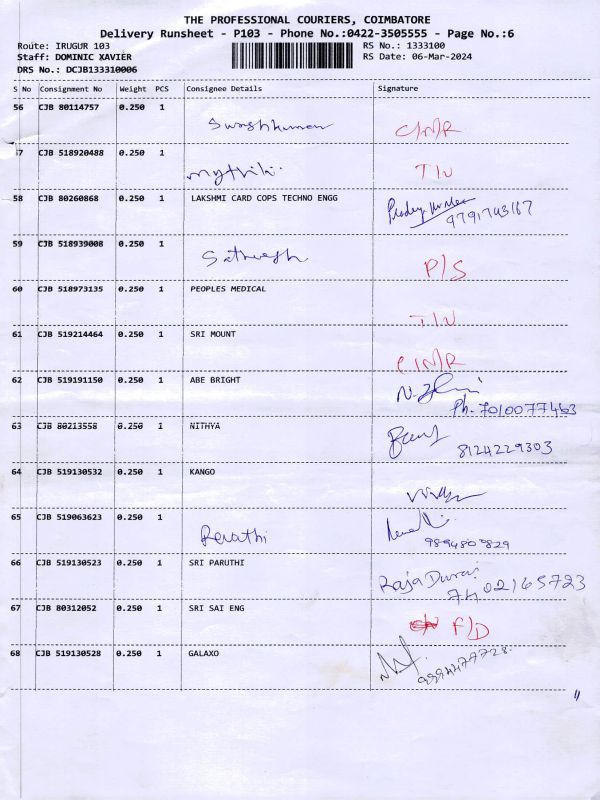 THE PROFESSIONAL COURIERS, COIMBATORE
Delivery Runsheet - P103 - Phone No.:0422-3505555 - Page No.:6
Route: IRUGUR 103 RS No.: 1333100
Staff: DOMINIC XAVIER RS Date: 06-Mar-2024
DRS No.: DCJB133310006
S No Consignment No Weight PCS Consignee Details Signature
56 CJB 80114757 0.250 1
C/N/R
57 CJB 518920488 0.250 1
mythili T/U
58 CJB 80260868 0.250 1 LAKSHMI CARD COPS TECHNO ENGG
9791743167
59 CJB 518939008 0.250 1
P/S
60 CJB 518973135 0.250 1 PEOPLES MEDICAL
T/U
61 CJB 519214464 0.250 1 SRI MOUNT
C/N/R
62 CJB 519191150 0.250 1 ABE BRIGHT
Ph. 7010077463
63 CJB 80213558 0.250 1 NITHYA
8124229303
64 CJB 519130532 0.250 1 KANGO
65 CJB 519063623 0.250 1
Revathi 9894803829
66 CJB 519130523 0.250 1 SRI PARUTHI
Raja Durai
7402165723
67 CJB 80312052 0.250 1 SRI SAI ENG
F/D
68 CJB 519130528 0.250 1 GALAXO
9994477728